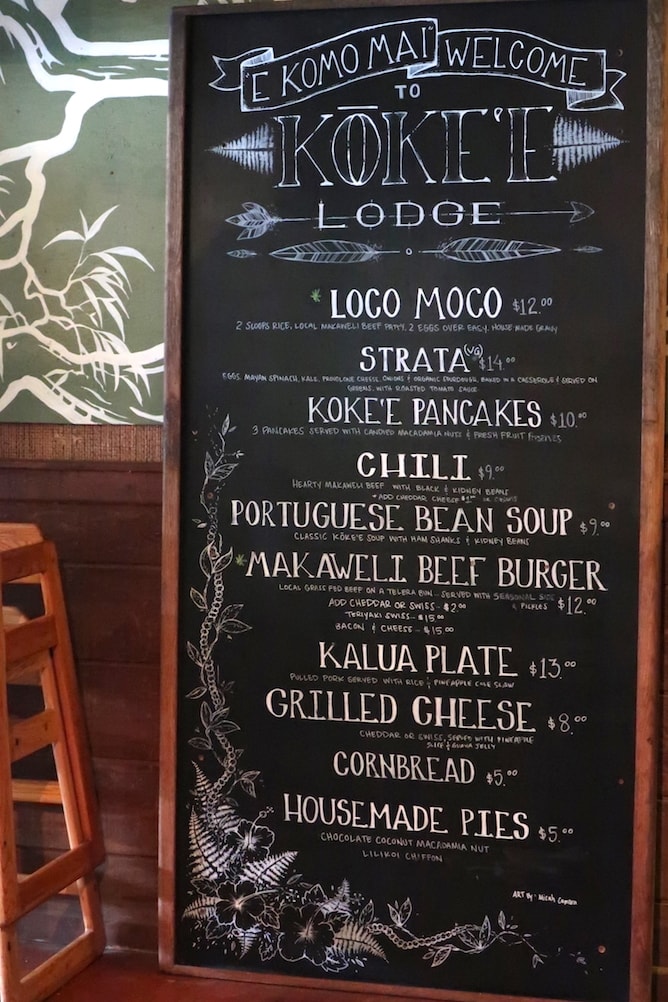 E KOMO MAI WELCOME
TO
KŌKE'E
LODGE
LOCO MOCO $12.00
2 SCOOPS RICE, LOCAL MAKAWELI BEEF PATTY, 2 EGGS OVER EASY, HOUSE MADE GRAVY
STRATA (VG) $14.00
EGGS, MAYAN SPINACH, KALE, PROVOLONE CHEESE, ONIONS & ORGANIC SOURDOUGH, BAKED IN A CASSEROLE & SERVED ON
GREENS, WITH ROASTED TOMATO SAUCE
KOKE'E PANCAKES $10.00
3 PANCAKES SERVED WITH CANDIED MACADAMIA NUTS & FRESH FRUIT
CHILI $9.00
HEARTY MAKAWELI BEEF WITH BLACK & KIDNEY BEANS
+ADD CHEDDAR CHEESE
PORTUGUESE BEAN SOUP $9.00
CLASSIC KŌKE'E SOUP WITH HAM SHANKS & KIDNEY BEANS
MAKAWELI BEEF BURGER
LOCAL GRASS FED BEEF ON A TELERA BUN - SERVED WITH SEASONAL SIDE
& PICKLES $12.00
ADD CHEDDAR OR SWISS - $2.00
TERIYAKI SWISS - $15.00
BACON & CHEESE - $15.00
KALUA PLATE $13.00
PULLED PORK SERVED WITH RICE & PINEAPPLE COLE SLAW
GRILLED CHEESE $8.00
CHEDDAR OR SWISS, SERVED WITH PINEAPPLE
SLICE & GUAVA JELLY
CORNBREAD $5.00
HOUSEMADE PIES $5.00
CHOCOLATE COCONUT MACADAMIA NUT
LILIKOI CHIFFON
ART BY: Micah